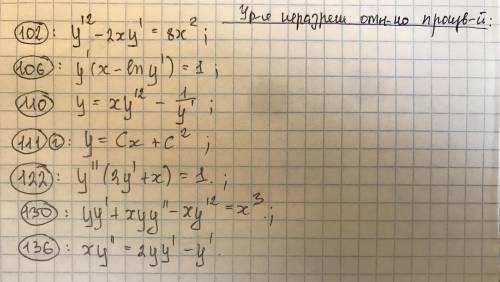 Ур-я неразреш отн-но произв-й:
102: y'² - 2xy' = 8x²;
106: y'(x - ln y') = 1;
110 y = xy'² - 1/y';
111 2: y = Cx + C²;
122: y''(2y' + x) = 1.;
130: yy' + xyy'' - xy'² = x³.;
136: xy'' = 2yy' - y'.